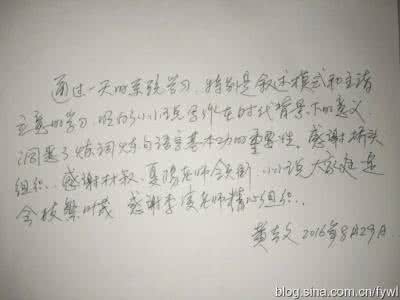 通过一天的系统学习，特别是叙术模式和主请
立意的学习，明的小小说写作在时代背景下的意义
洞悉了炼词炼句语言基本功的重要性。感谢桥头
组织.. 感谢林叔、夏阳老师领衔 小小说大家庭是
全枝繁叶茂 感谢李老师精心组织..
2016年8月29日
blog.sina.com.cn/fywl